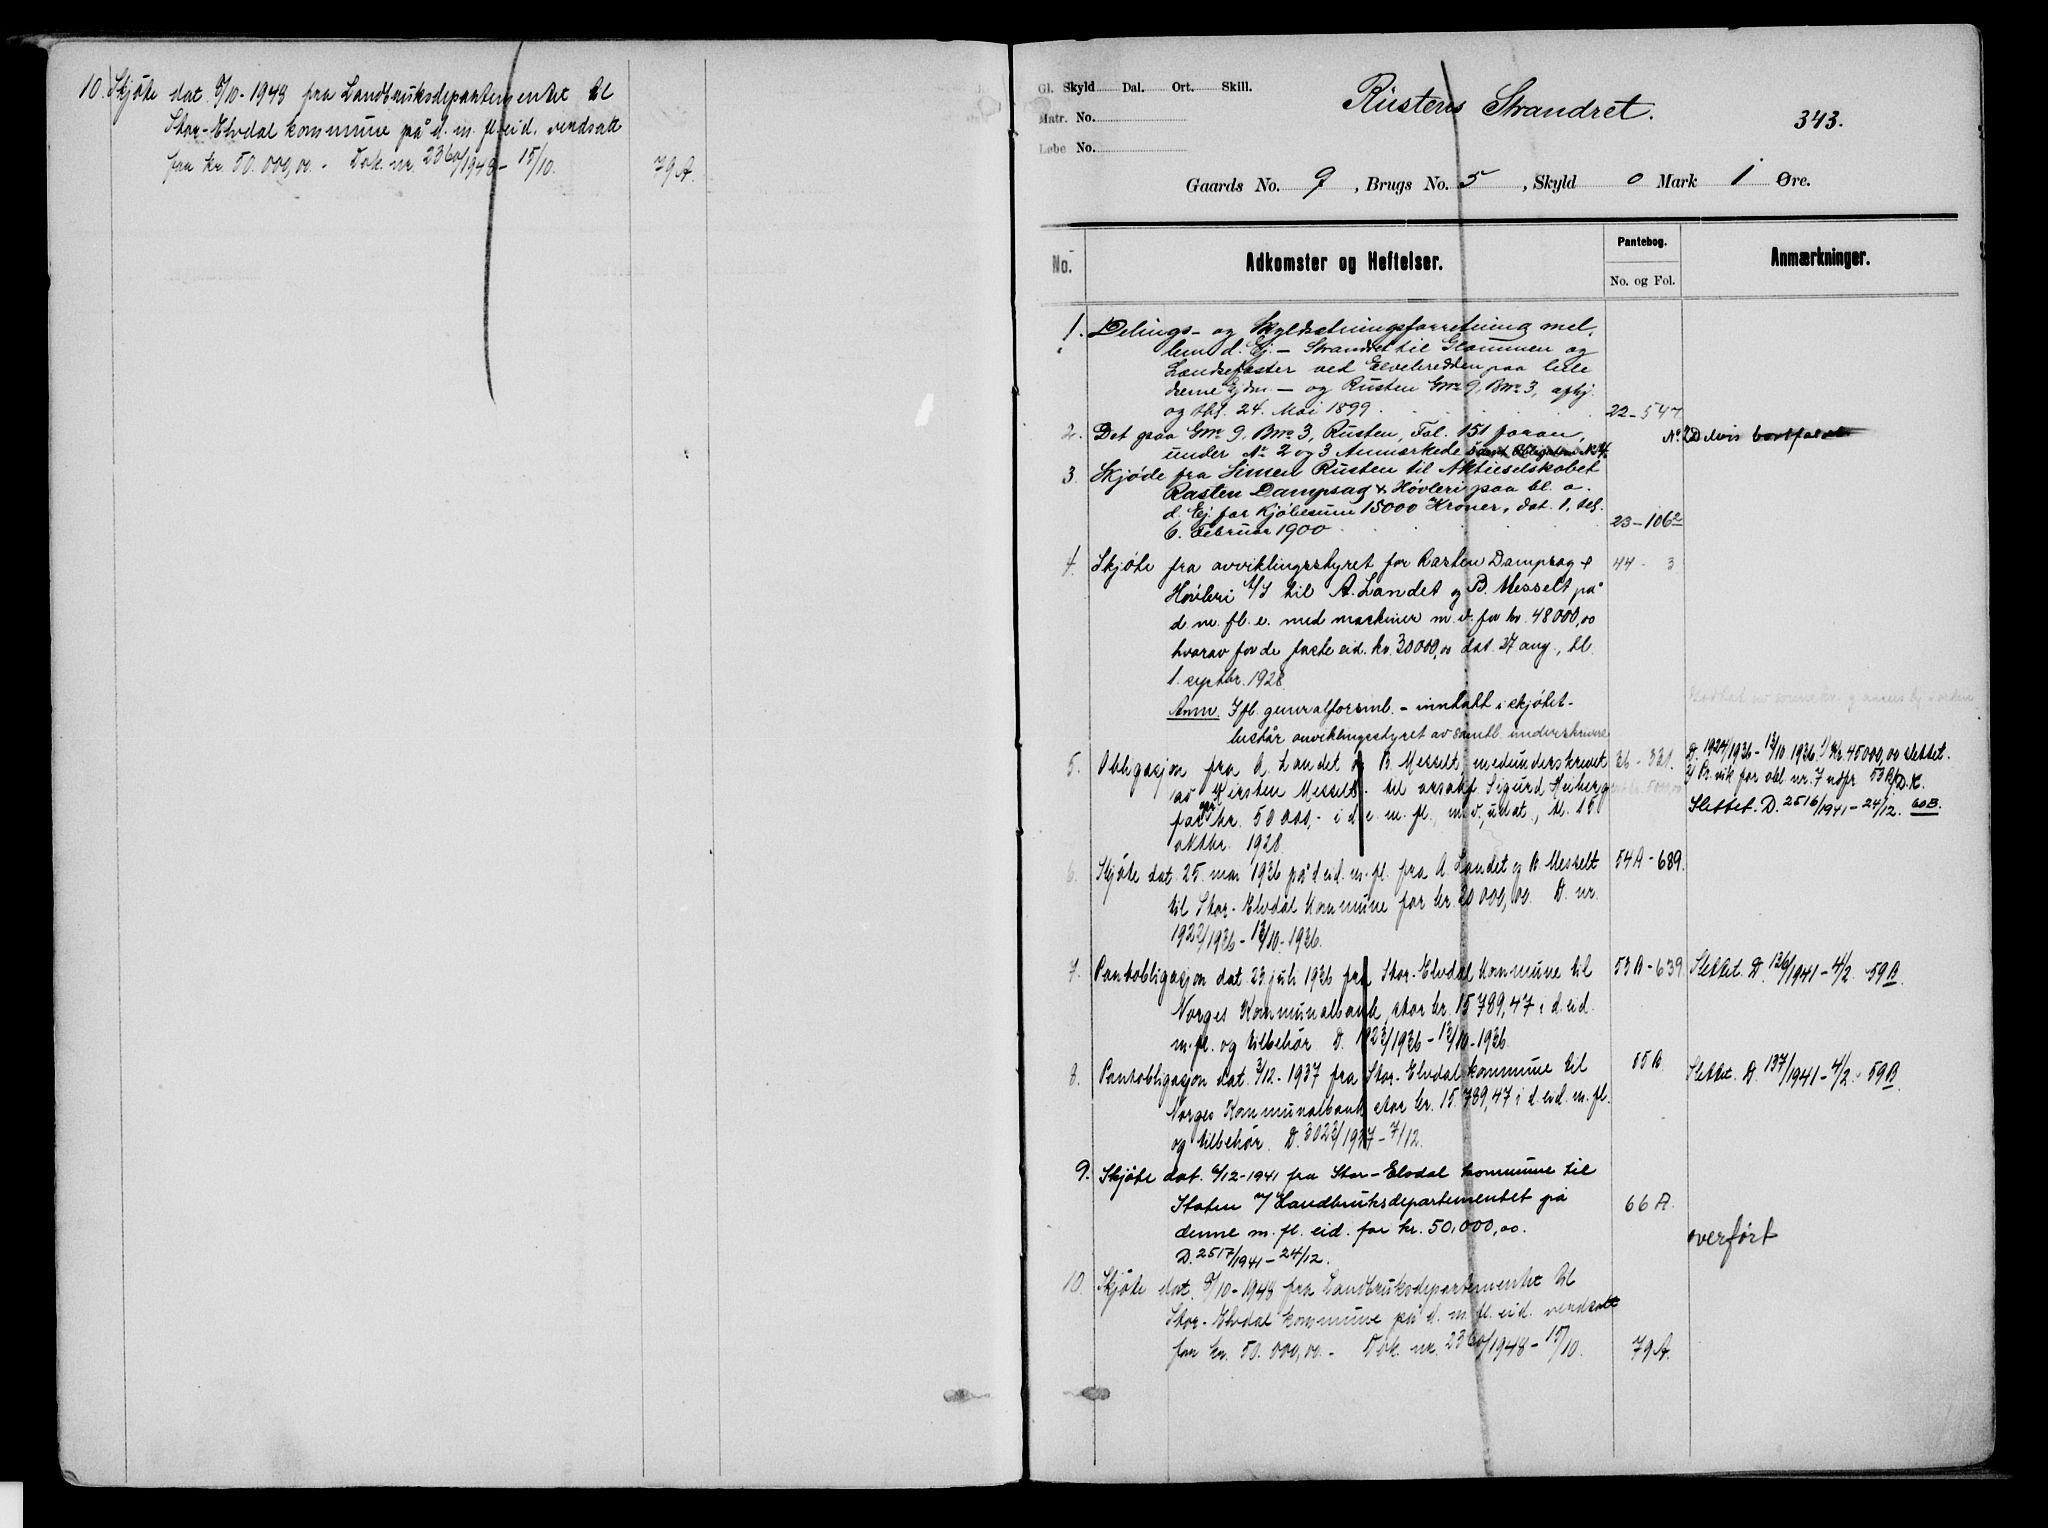 10. Skjöte dat. 9/10-1948 fra Landbruksdepartementet til
Stor-Elvdal kommune på d. m. fl. eid. verdsatt
for kr. 50.000,00.- Dok. nr. 2360/1948 - 15/10.
79 A.
Gl. Skyld Dal. Ort. Skill.
Matr. No.
Løbe No.
Rustens Strandret.
343.
Gaards No. 9, Brugs No. 5, Skyld 0 Mark 1 Øre.
No.
Adkomster og Heftelser.
Pantebog.
No. og Fol.
Anmærkninger.
1. Delings- og Skyldsætningsforretning mel.
lem d. Ej. - Strandret til Glommen og
Landsefæster ved Elvebredden paa hele
denne Ejdm. - og Rusten Gno 9, Bno 3, afhj.
og thl. 24. Mai 1899. 22-547.
2. Det paa Gno 9, Bno 3, Rusten, Fol. 151 foran,
under No 2 og 3 Anmærkede
No 2 Delvis bortfaldt
3. Skjøde fra Simen Rusten til Aktieselskabet
Rasten Dampsag & Høvleri paa bl. a.
d. Ej. for Kjøbesum 15000 Kroner, dat. 1, tgl.
6. Februar 1900. 23-106²
4. Skjøte fra avviklingsstyret for Rasten Dampsag & 44 - 3
Høvleri A/S til A. Landet og B. Messelt på
d. m. fl. e. med maskiner m. v. for kr. 48000,00
hvorav for de faste eid. kr. 30000,00 dat. 27 aug., tl.
1. septbr. 1928.
Anm. Ifl. generalforsml. - inntatt i skjøtet -
består avviklingsstyret av samtl. underskrivere
5. Obligasjon fra A. Landet og B Messelt medunderskrevet 36 - 321.
av Kirsten Messelt til orsakf. Sigurd Heiberg
for kr. 50000,- i d. e. m. fl. m. v., udat., tl. 15
oktbr. 1928.
D. 1924/1936 - 13/10 1936. 1) Kr. 45000,00 slettet.
2) Pr. vik for obl. nr. 7 ndfr 53 B/D.K.
Slettet. D. 2516/1941 - 24/12. 60B.
6. Skjøte dat. 25. mai 1936 på d. eid. m. fl. fra A Landet og B Messelt 54A-689.
til Stor-Elvdal kommune for kr. 20000,00. D. nr.
1922/1936 - 13/10-1936.
7. Pantobligasjon dat. 23 juli 1936 fra Stor-Elvdal kommune til 53B-639.
Norges Kommunalbank, stor kr. 15789,47 i d. eid.
m. fl. og tilbehör. D. 1923/1936 - 13/10-1936.
Slettet. D. 136/1941 - 4/2. 59B.
8. Pantobligasjon dat. 3/12-1937 fra Stor-Elvdal kommune til 55B
Norges Kommunalbank stor kr. 15.789,47 i d. eid. m. fl.
og tilbehör. D. 3023/1937 - 7/12.
Slettet. D. 137/1941 - 4/2. 59B
9. Skjøte dat. 6/12-1941 fra Stor-Elvdal kommune til
Staten v/ Landbruksdepartementet på 66 A.
denne m. fl. eid. for kr. 50.000,00.
D. 2517/1941 - 24/12.
overført
10. Skjöte dat. 9/10-1948 fra Landbruksdepartementet til
Stor-Elvdal kommune på d. m. fl. eid. verdsatt
for kr. 50.000,00.- Dok. nr. 2360/1948 - 15/10. 79A.